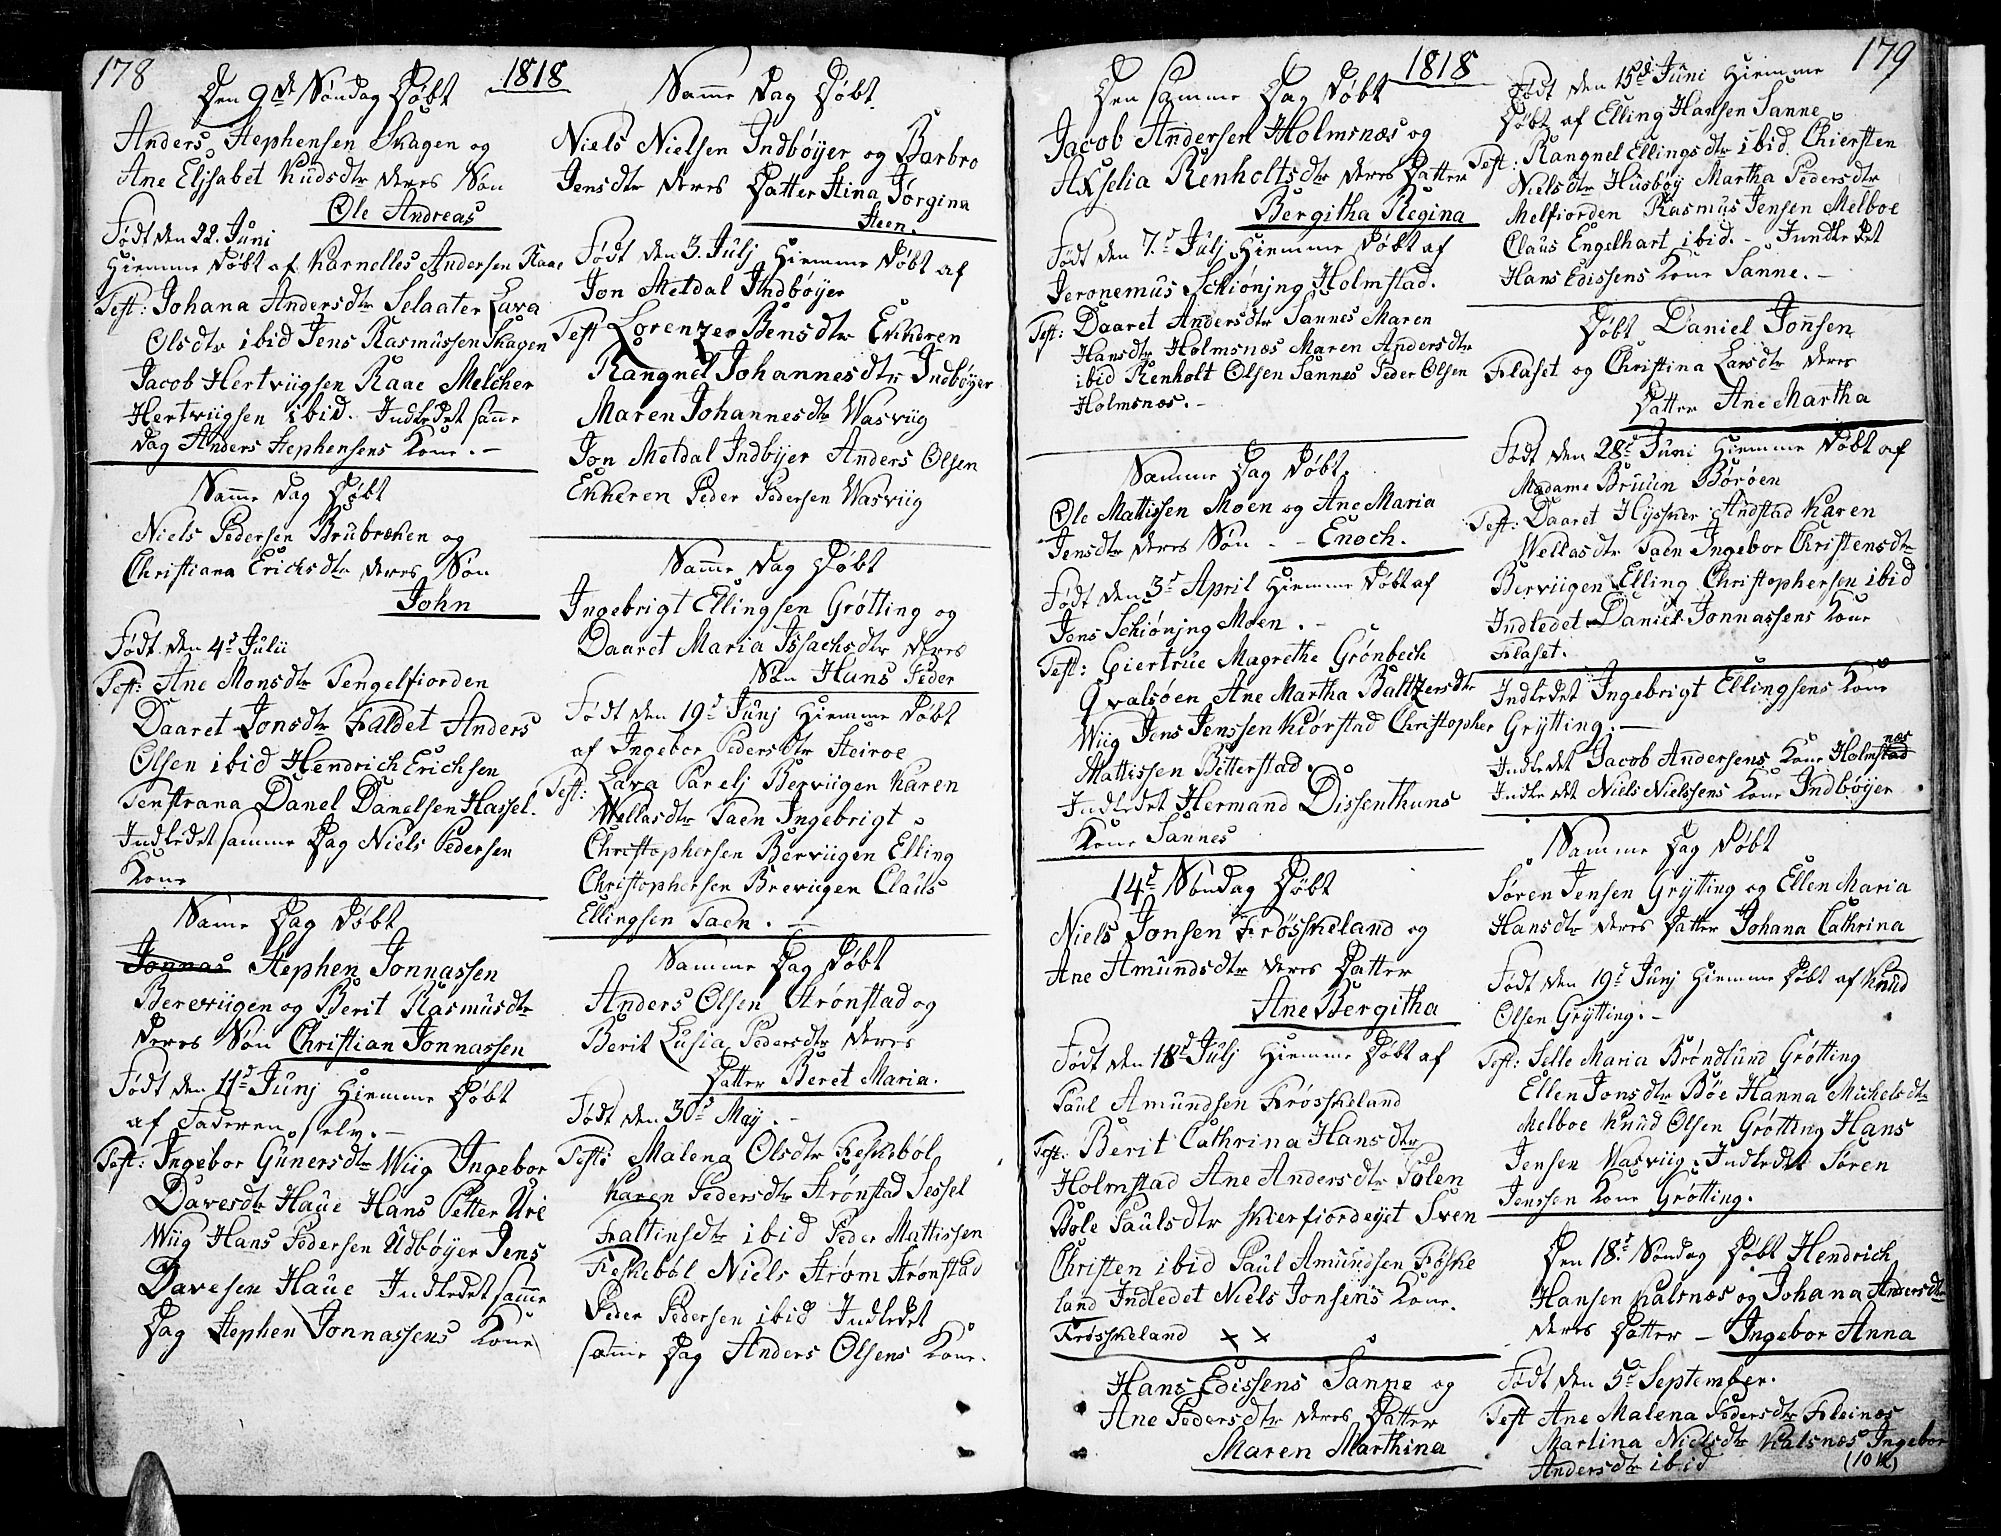 178
1818
Den 9de Søndag Døbt
Anders Stephensen Skagen og
Ane Elisabet Kudsdtr deres Søn
Ole Andreas
Født den 22. Juni
Hiemme Døbt af Karnelles Andersen Raae
Test: Johana Andersdtr Selaater Lava
Olsdtr ibid Jens Rasmussen Skagen
Jacob Hertviigsen Raae Melcher
Hertviigsen ibid. Indledet samme
Dag Anders Stephensens Kone. –
Samme Dag Døbt
Niels Pedersen Brubræken og
Christiana Erichsdtr deres Søn
John
Født den 4de Julii
Test: Ane Monsdtr Tengelfiorden
Daaret Jonsdtr Faldet Anders
Olsen ibid Hendrich Erichsen
Tenstrana Danel Danelsen Hassel.
Indledet samme Dag Niels Pedersen
Kone
Same Dag Døbt
Jonnas Stephen Jonnassen
Bereviigen og Berit Rasmusdtr
deres Søn Christian Jonnassen
Født den 11d Junj Hiemme Døbt
af Faderen selv. –
Test: Ingebor Gunersdtr Wiig Ingebor
Davesdtr Haue Hans Petter Uri
Wiig Hans Pedersen Udbøyer Jens
Davesen Haue Indledet samme
Dag Stephen Jonnassens Kone
Samme Dag Døbt
Niels Nielsen Indbøyer og Barbro
Jensdtr deres Datter Stina Jørgina
Steen.
Født den 3. Julj Hiemme Døbt af
Jon Meldal Indbøyer
Test Lorenzeo Bensdtr Ekkeren
Rangnel Johannesdtr Indbøyer
Maren Johannesdtr Wasviig
Jon Meldal Indbyer Anders Olsen
Ekkeren Peder Pedersen Wasviig
Samme Dag Døbt
Ingebrigt Ellingsen Grøtting og
Daaret Maria Issachsdtr deres
Søn Hans Peder
Født den 19d Junj Hiemme Døbt
af Ingebor Pedersdtr Steiroe
Test: Lava Parelj Berviigen Karen
Wellasdtr Taen Ingebrigt
Christophersen Berviigen Elling
Christophersen Breviigen Claus
Ellingsen Taen. –
Samme Dag Døbt
Anders Olsen Strønstad og
Berit Lusia Pedersdtr deres
Datter Beret Maria.
Født den 30d May. –
Test: Malena Olsdtr Feskebøl
Karen Pedersdtr Strønstad Sessel
Faltinsdtr ibid Peder Mattissen
Feskebøl Niels Strøm Strønstad
Peder Pedersen ibid Indledet
samme Dag Anders Olsens Kone.
1818
179
Den samme Dag Døbt
Jacob Andersen Holmsnæs og
Axselia Renholtsdtr deres Datter
Bergitha Regina
Født den 7d Julj Hiemme Døbt af
Jeronemus Schiønjng Holmstad.
Test: Daaret Andersdtr Sannes Maren
Hansdtr Holmsnæs Maren Andersdtr
ibid Renholt Olsen Sannes Peder Olsen
Holmsnæs. –
Samme Dag Døbt
Ole Mattissen Moen og Ane Maria
Jensdtr deres Søn – Enoch.
Født den 3d April Hiemme Døbt af
Jens Schiønjng Moen. –
Test: Giertrue Magrethe Grønbech
Qvalsøen Ane Martha Baltzersdtr
Wiig Jens Jenssen Kiørstad Christopher
Mattissen Bitterstad.
Indledet Hermand Dissenthuns
Kone Sannes
14d Søndag Døbt
Niels Jonsen Frøsskeland og
Ane Amundsdtr deres Datter
Ane Bergitha
Født den 18d Julj Hiemme Døbt af
Paul Amundsen Frøsskeland
Test: Berit Cathrina Hansdtr
Holmstad Ane Andersdtr Polen
Bole Paulsdtr Skierfiordeyet Sven
Christen ibid Paul Amundsen Frøske
land Indledet Niels Jonsens Kone.
Frøsskeland ××
Hans Edissens Sanne og
Ane Pedersdtr deres Datter
Maren Marthina
Født den 15d Juni Hiemme
Døbt af Elling Hansen Sanne
Test: Rangnel Ellingsdtr ibid. Chiersten
Nielsdtr Husbøy Martha Pedersdtr
Melfiorden Rasmus Jensen Melboe
Claus Engelhart ibid. – Indledet
Hans Edissens Kone Sanne. –
Døbt Daniel Jonsen
Flaset og Christina Larsdtr deres
Datter Ane Martha
Født den 28d Juni Hiemme Døbt af
Madame Bruun Børøen
Test: Daaret Hyssner Andstad Karen
Wellasdtr Taen Ingebor Christensdtr
Berviigen Elling Christophersen ibid
Indledet Daniel Jonnassens Kone
Flaset.
Indledet Ingebrigt Ellingsens Kone
Grytting. –
Indledet Jacob Andersens Kone Holmstad næs
Indledet Niels Nielssens Kone Indbøyer
Samme Dag Døbt
Søren Jensen Grytting og Ellen Maria
Hansdtr deres Datter Johana Cathrina
Født den 19d Junj Hiemme Døbt af Knud
Olsen Grytting. –
Test: Selle Maria Brøndlund Grøtting
Ellen Jonsdtr Bøe Hanna Michelsdtr
Melboe Knud Olsen Grøtting Hans
Jensen Wasviig. Indledet Søren
Jenssen Kone Grøtting.
Den 18d Søndag Døbt Hendrich
Hansen Kalsnæs og Johana Andersdtr
deres Datter – Ingebor Anna
Født den 5d September.
Test Ane Malena Pedersdtr Fleinæs
Martina Nielsdtr Kalsnæs Ingebor
Andersdtr ibid